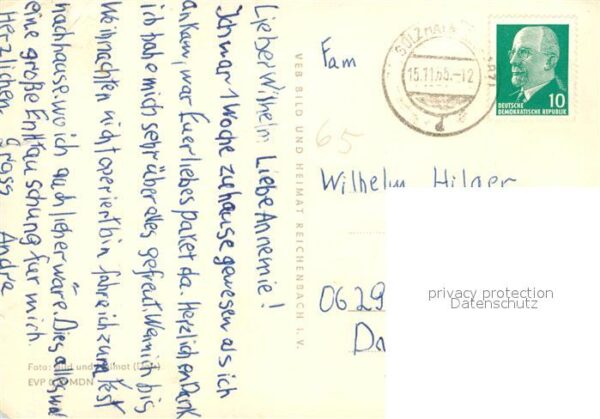 Lieber Wilhelm Liebe Annemie!
Ich war 1 Woche zuhause gewesen als ich
ankam, war Euer liebes paket da. Herzlichen Dank
ich habe mich sehr über alles gefreut. Wenn ich bis
Weihnachten nicht operiert bin fahre ich zum Fest
nachhause, wo ich auch lieber wäre. Dies alles war
eine große Enttäuschung für mich.
Herzlichen Gruss Andre
VEB BILD UND HEIMAT REICHENBACH I. V.
Foto: Bild und Heimat
EVP MDN
SÜLZ
15.11.65.-12
DEUTSCHE
DEMOKRATISCHE REPUBLIK
10
Fam
65
Wilhelm Hilger
0629
Da
privacy protection
Datenschutz